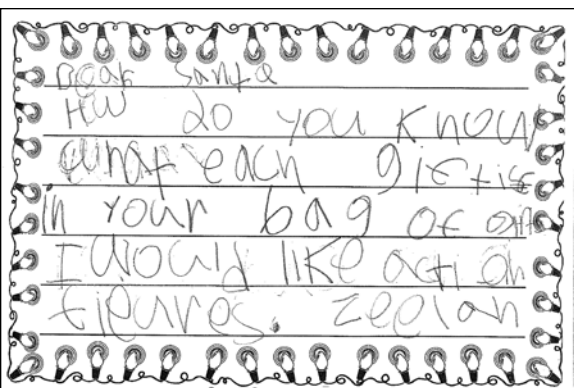 Dear Santa
HW do you know
what each gift is
in your bag of
I would like action
figures. Zeelan